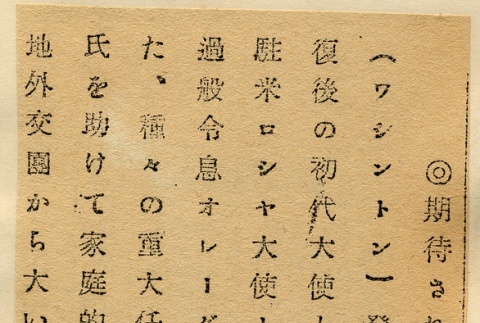 ◎期待され
(ワシントン)発
復後の初代大使
駐米ロシヤ大使
過般令息オレーグ
た、種々の重大任
氏を助けて家庭的
地外交園から大い